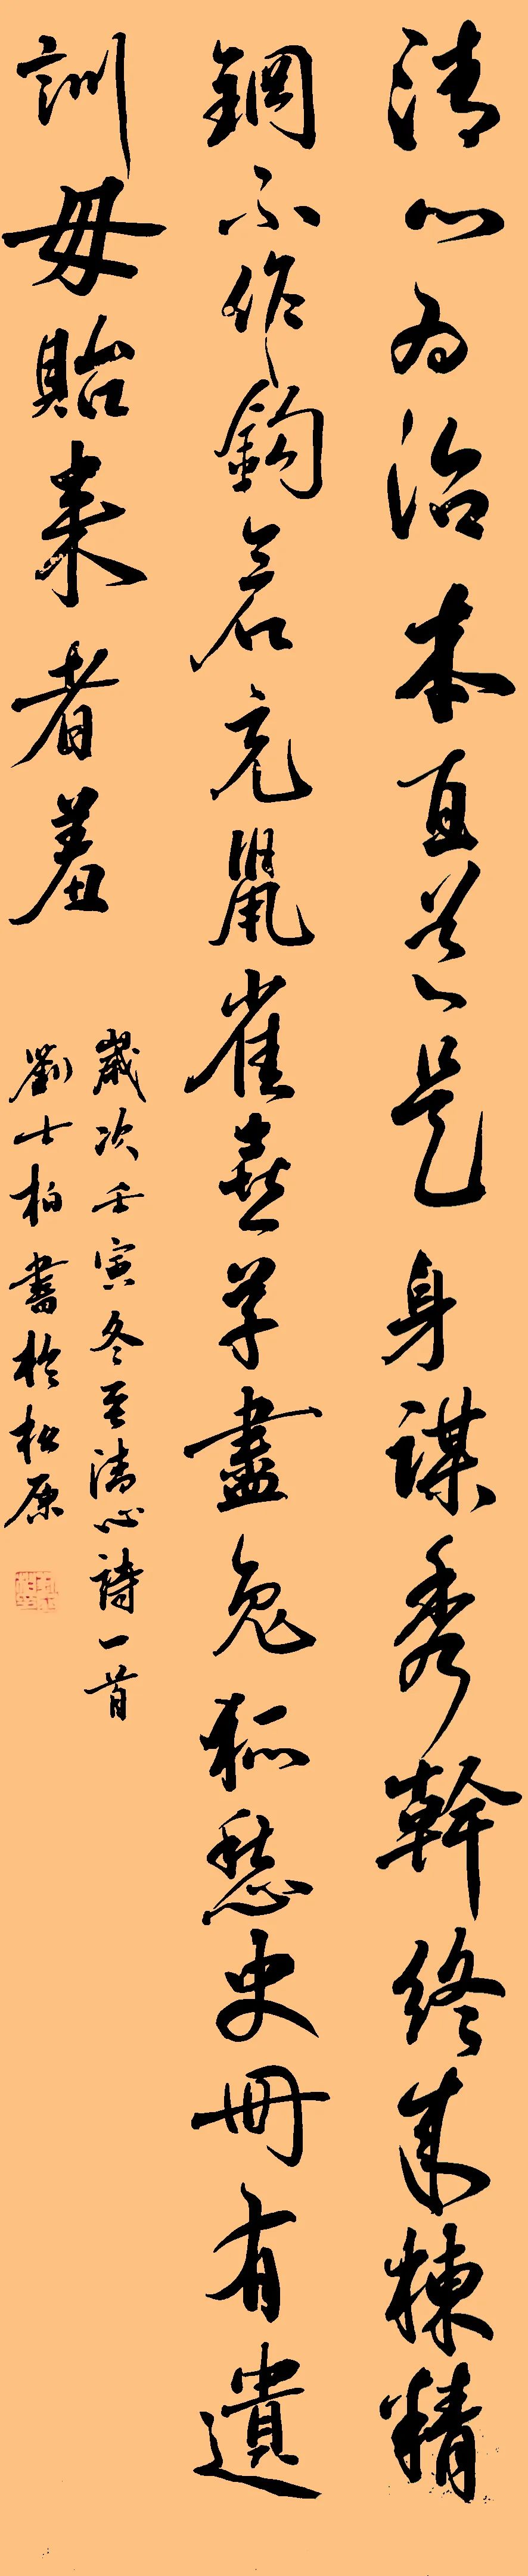 清心為治本直道是身謀秀幹終成棟精
鋼不作鉤倉充鼠雀喜草盡兔狐愁史冊有遺
訓毋貽來者羞
歲次壬寅冬至清心詩一首
劉士柏書於松原